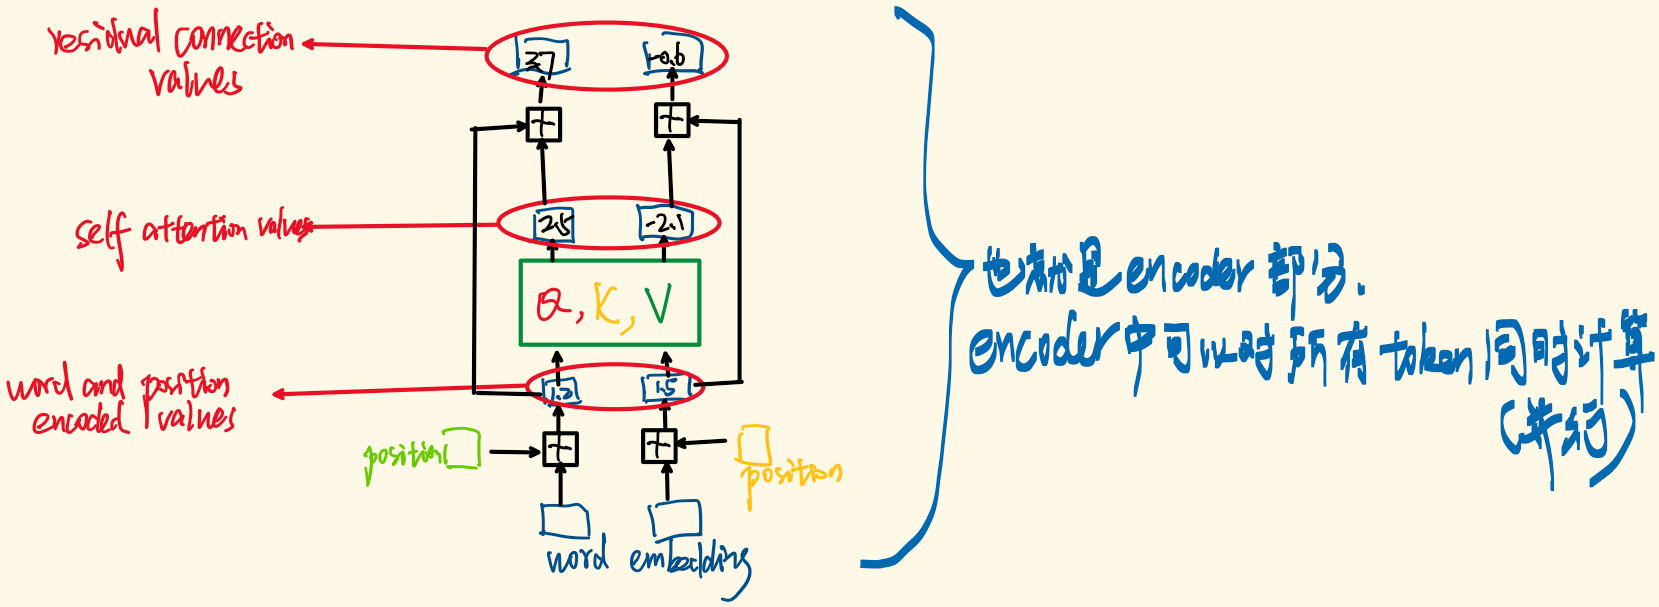 residual connection
values
3.7
-0.6
+
+
self attention values
2.5
-2.1
Q, K, V
word and position
encoded values
1.2
1.5
position
+
+
position
word embedding
也就是encoder部分.
encoder中可以对所有token同时计算
(并行)